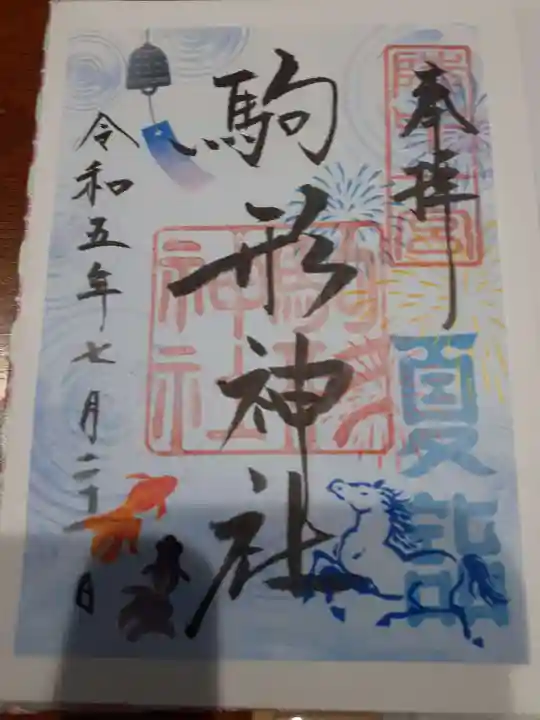 奉拝
陸中一宮
夏詣
駒形神社
駒形神社
令和五年七月二十一日